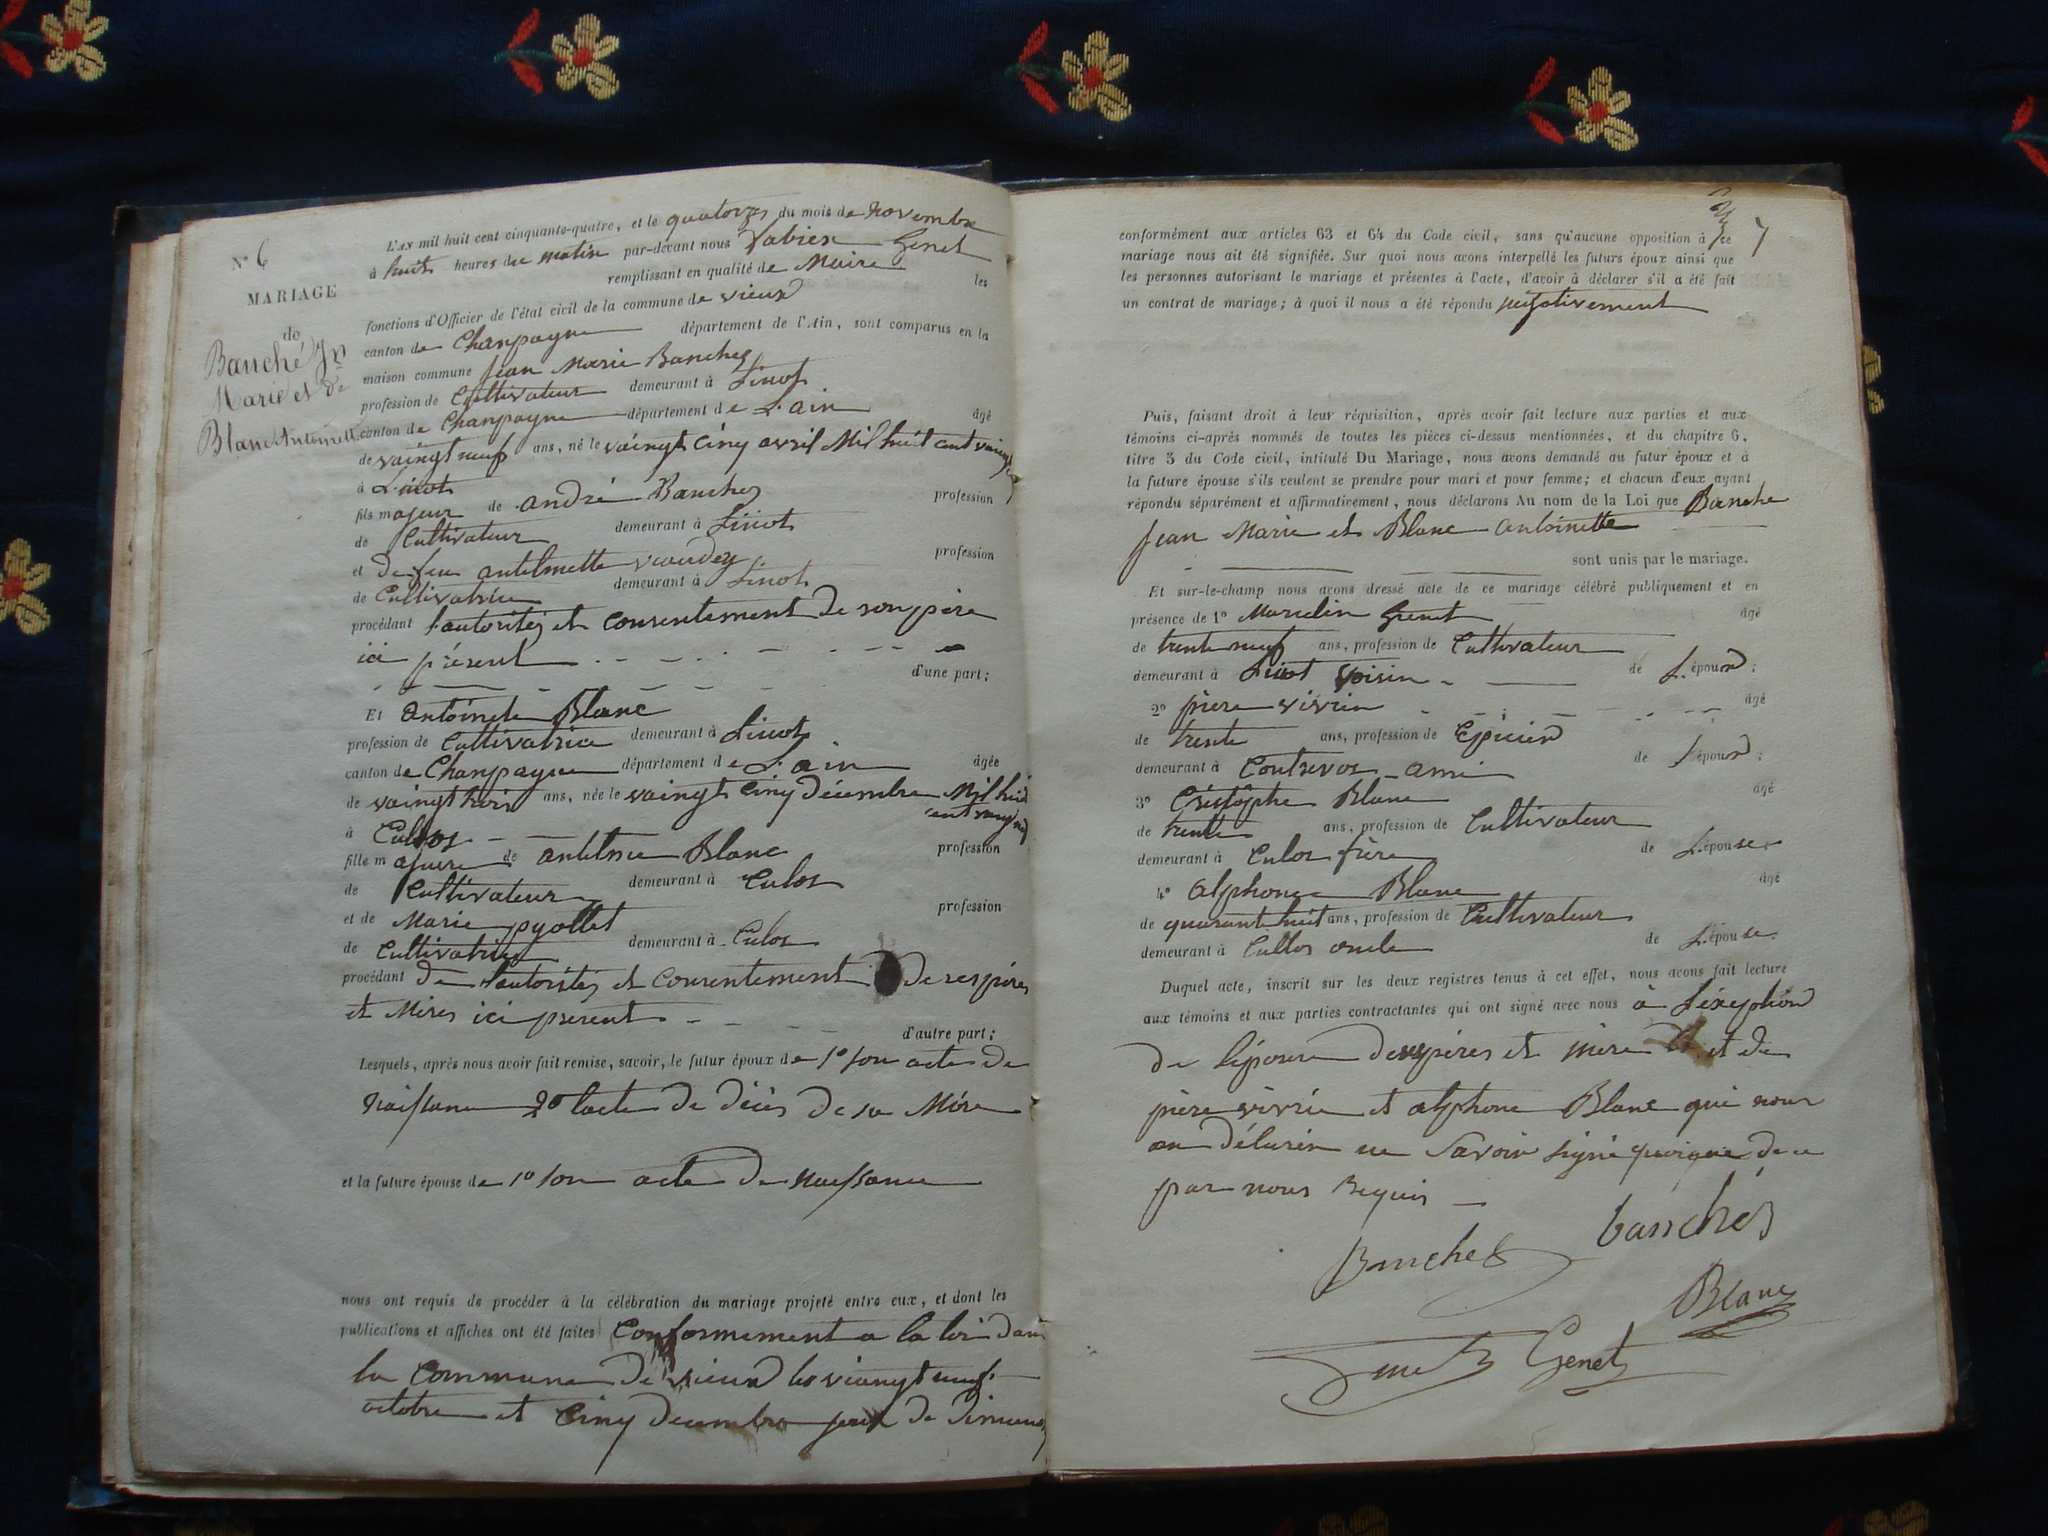 N° 6
MARIAGE
de
Banché Jn
Marie et de
Blanc Antoinette
L'AN mil huit cent cinquante-quatre, et le quatorze du mois de novembre
à huit heures du matin par-devant nous Genet
remplissant en qualité de Maire les
fonctions d'Officier de l'état civil de la commune de vieux
canton de Champagne département de l'Ain, sont comparus en la
maison commune Jean Marie Banchez
profession de Cultivateur demeurant à Linot
canton de Champagne département de L'ain âgé
de vaingt neuf ans, né le vaingt cinq avril Mil huit cent vaingt
à Linot
fils majeur de andré Banchez profession
de Cultivateur demeurant à Linot
et de feu antelmette profession
de Cultivatrice demeurant à Linot
procédant l'autoritéz et consentement de son père
ici présent
d'une part;
Et antoinete Blanc
profession de Cultivatrice demeurant à Linot
canton de Champagne département de L'ain âgée
de vaingt huit ans, née le vaingt cinq décembre Mil huit
cent
à Culoz
fille majeure de antelme Blanc profession
de Cultivateur demeurant à Culoz
et de Marie pyollet profession
de Cultivatrice demeurant à Culoz
procédant de l'autoritéz et consentement de ses pères
et Mères ici present
d'autre part;
Lesquels, après nous avoir fait remise, savoir, le futur époux de 1° son acte de
naissance 2° l'acte de décès de sa Mère
et la future épouse de 1° son acte de naissance
nous ont requis de procéder à la célébration du mariage projeté entre eux, et dont les
publications et affiches ont été faites Conformement a la loi dans
la commune de vieux les viangt neuf
octobre et cinq decembre jour de dimanc
7
conformément aux articles 63 et 64 du Code civil, sans qu'aucune opposition à ce
mariage nous ait été signifiée. Sur quoi nous avons interpellé les futurs époux ainsi que
les personnes autorisant le mariage et présentes à l'acte, d'avoir à déclarer s'il a été fait
un contrat de mariage; à quoi il nous a été répondu négativement
Puis, faisant droit à leur réquisition, après avoir fait lecture aux parties et aux
témoins ci-après nommés de toutes les pièces ci-dessus mentionnées, et du chapitre 6,
titre 5 du Code civil, intitulé Du Mariage, nous avons demandé au futur époux et à
la future épouse s'ils veulent se prendre pour mari et pour femme; et chacun d'eux ayant
répondu séparément et affirmativement, nous déclarons Au nom de la Loi que Banche
Jean Marie et Blanc antoinette
sont unis par le mariage.
Et sur-le-champ nous avons dressé acte de ce mariage célébré publiquement et en
présence de 1° Marcelin Genet âgé
de trente neuf ans, profession de Cultivateur
demeurant à Linot voisin de L'époux;
2° pière vivrin âgé
de trente ans, profession de Epicier
demeurant à Contrevoz ami de l'époux;
3° Cristophe Blanc âgé
de trente ans, profession de Cultivateur
demeurant à Culoz frère de L'épouse
4° alphonse Blanc âgé
de quarante huit ans, profession de Cultivateur
demeurant à Culloz oncle de L'épouse.
Duquel acte, inscrit sur les deux registres tenus à cet effet, nous avons fait lecture
aux témoins et aux parties contractantes qui ont signé avec nous à L'exeption
de l'épouse des pères et mère et de
pière vivrin et alphonse Blanc qui nous
on déclarén ne savoir signé quoique de ce
par nous requis
Banchez banchéz
Blanc
Genet Genet